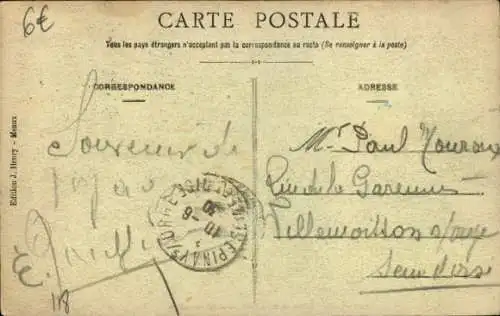 6€
CARTE POSTALE
Tous les pays étrangers n'acceptant pas la correspondance au recto (Se renseigner à la poste)
CORRESPONDANCE
ADRESSE
Edition J. Henry - Meaux
Souvenir de
Mr Paul
Rue de la Garenne
Villemoisson s/orge
Seine et Oise
EPINAY S/ORGE
10 -6
30
118